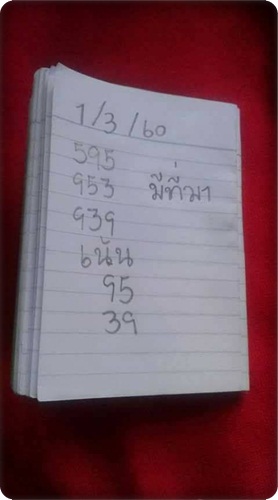 1/3/60
595
953 มีที่มา
939
เน้น
95
39